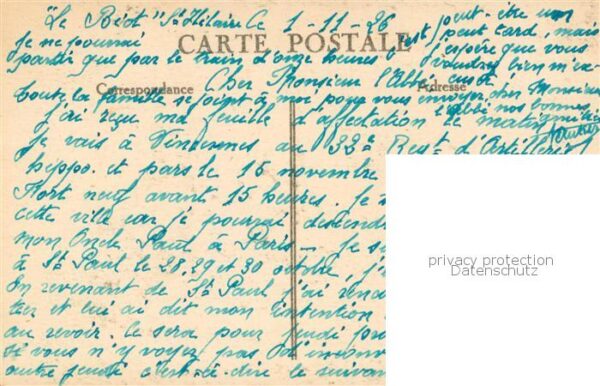 "Le Bédt" St Hilaire Ce 1-11-26
CARTE POSTALE
Correspondance
Adresse
Cher Monsieur l'Abbé
J'ai reçu ma feuille d'affectation le matin
Je vais à Vincennes au 33e Regt d'Artillerie
hippo. et pars le 15 novembre
Fort neuf avant 15 heures. Je
cette ville car je pourrai descend
mon Oncle Paul à Paris — Je
à St Paul le 28, 29 et 30 octobre, j'
En revenant de St Paul j'ai
et lui ai dit mon intention
au revoir. Ce sera pour jeudi
si vous n'y voyez pas d'
autre jeudi c'est-à-dire le suivant
je ne pourrai
partir que par le train d'onze heures
c'est peut-être un
peu tard, mais
j'espère que vous
voudrez bien m'ex-
cuser
Toute la famille se joint à moi pour vous envoyer, cher Monsieur
l'Abbé nos bonnes
amitiés
privacy protection
Datenschutz